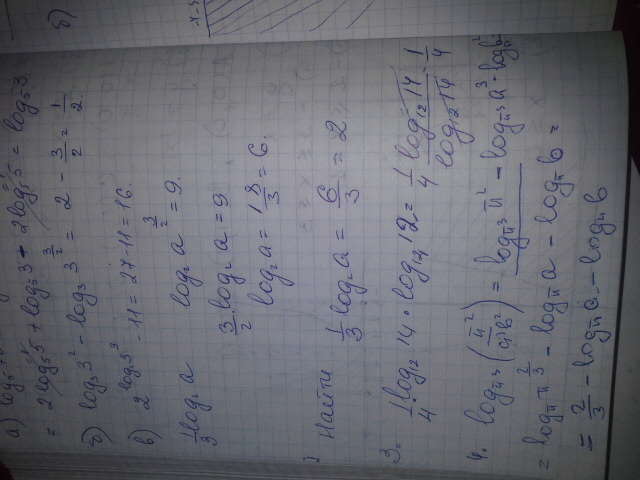 а) log₅
= 2log₅5 + log₅3 - 2log₅5 = log₅3.
б) log₃3² - log₃3^(3/2) = 2 - 3/2 = 1/2.
б)
в) 2^(log₂3³) - 11 = 27 - 11 = 16.
1/3 log₂a log₂a^(3/2) = 9.
3/2 log₂a = 9
log₂a = 18/3 = 6.
Найти 1/3 log₂a = 6/3 = 2
3. 1/4 log₁₂14 · log₁₄12 = 1/4 log₁₂14/log₁₂14 = 1/4
4. log_π³(π²/(a³b²)) = log_π³ π² - log_π³ a³ - log
= log_π π^(2/3) - log_π a - log_π b =
= 2/3 - log_π a - log_π b